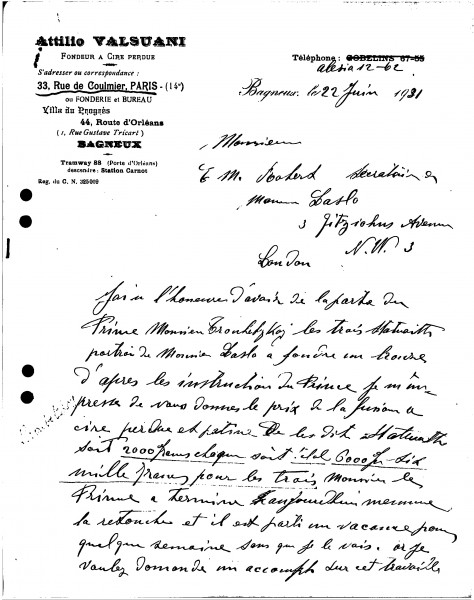 Attilio VALSUANI
FONDEUR A CIRE PERDUE
S'adresser ou correspondance :
33, Rue de Coulmier, PARIS - (14e)
OU FONDERIE ET BUREAU
Villa du Progrès
44, Route d'Orléans
(1, Rue Gustave Tricart)
BAGNEUX
Tramway 88 (Porte d'Orléans)
descendre : Station Carnot
Reg. du C. N. 325009
Téléphone : GOBELINS 67-55
alesia 12-62
Bagneux, le 22 Juin 1931
Monsieur
E M. Robert Secretaire
Laslo
3 Fitzjohns Avenue
London N.W. 3
J'ai u l'honneur d'avoir de la parte du
Prince Monsieur Troubetzkoj les trois statuette
portrai de Monsieur Laslo a fondre en bronze
D'apres les instruction du Prince je m'em
presse de vous donner le prix de la fusion a
cire perdue et patine De les dit Statuette
sont 2000 frans chaque soit 6000 f. six
mille frans pour les trois Monsieur le
Prince a termine aujourdhui
la retouche et il est parti en vacance pour
quelque semaine sans que je le vois. or je
voulez demander un accompte sur cet travaille